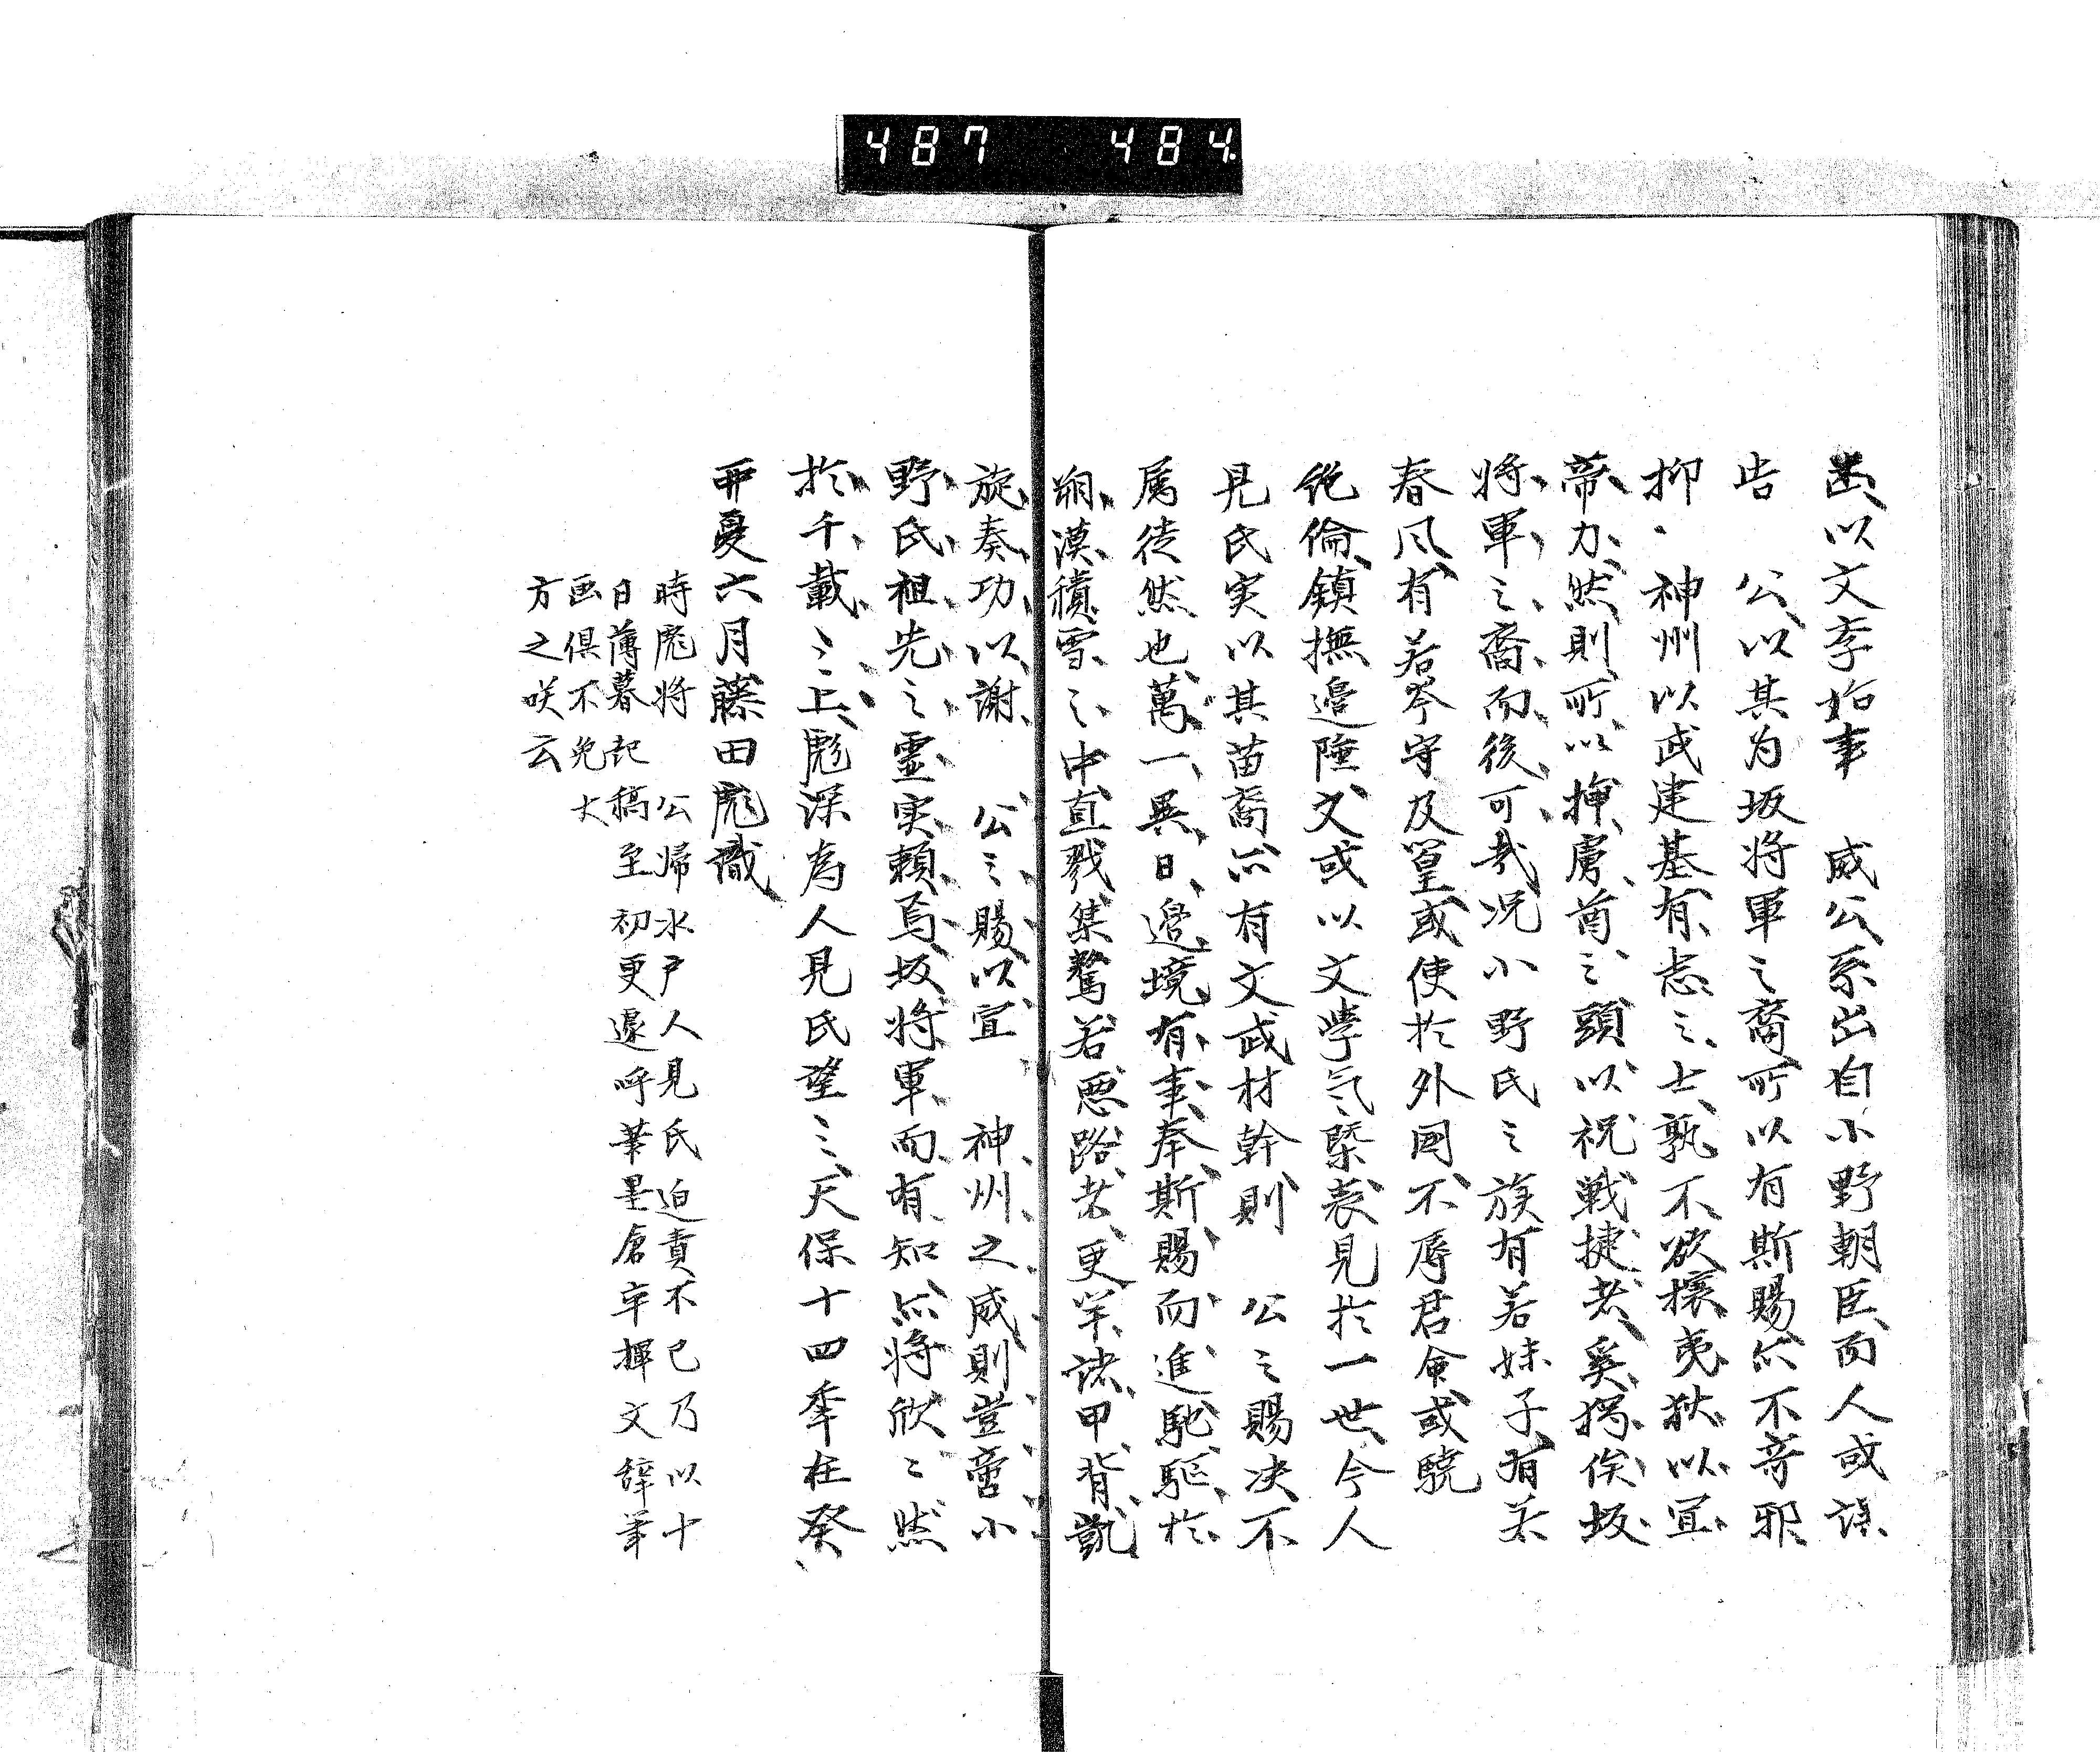 487 484
以文李始事 威公系出自小野朝臣而人或誤
告 公以其为坂将軍之裔所以有斯賜亦不奇邪
抑神州以武建基有志之士孰不欲攘夷狄以宣
帯力然則所以揮虜首之頭以祝戦捷者奚獨俟坂
将軍之裔而後可哉况小野氏之族有若妹子有若
春風有若岑守及篁或使於外国不辱君命或驍
絶倫鎮撫邉陲又或以文学氣槩表見於一世今人
見氏実以其苗裔亦有文武材幹則 公之賜决不
属徒然也萬一異日邉境有事奉斯賜而進馳驅於
朔漠積雪之中直戮集鷔若恶路者更羊諸甲背凱
旋奏功以謝 公之賜以宣 神州之威則豈啻小
野氏祖先之霊実頼焉坂将軍而有知亦将欣〻然
於千載之上彪深為人見氏望之天保十四季在癸
夘夏六月藤田彪識
時彪将 公帰水戸人見氏迫責不已乃以十
日薄暮起稿至初更遽呼筆墨倉卒揮文辞筆
画倶不免大
方之咲云